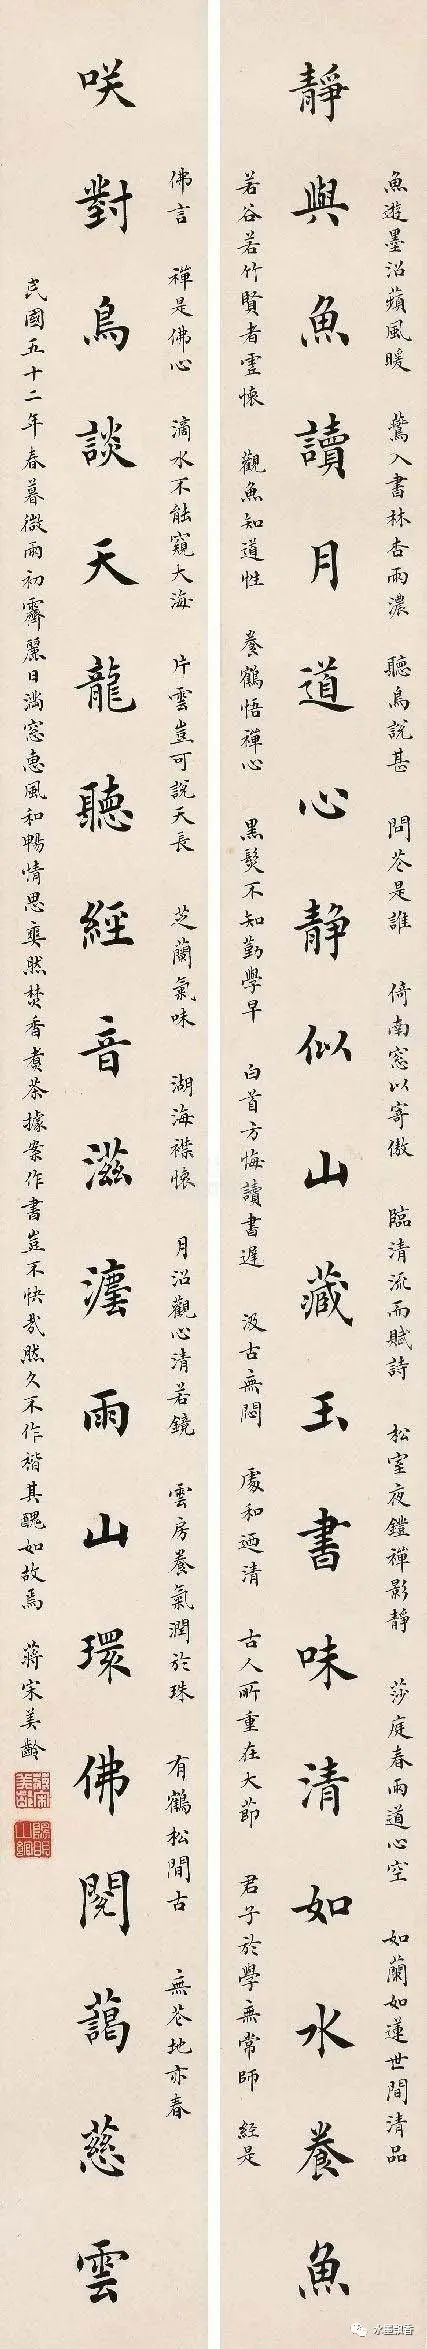 魚遊墨沼蘋風暖 鶯入書林杏雨濃 聽鳥說甚 問花是誰 倚南窓以寄傲 臨清流而賦詩 松室夜鐙禪影靜 莎庭春雨道心空 如蘭如蓮世間清品
靜與魚讀月道心靜似山藏玉書味清如水養魚
若谷若竹賢者虛懷 觀魚知道性 養鶴悟禪心 黑髮不知勤學早 白首方悔讀書遲 汲古無悶 處和迺清 古人所重在大節 君子於學無常師 經是
佛言 禪是佛心 滴水不能窺大海 片雲豈可說天長 芝蘭氣味 湖海襟懷 月沼觀心清若鏡 雲房養氣潤於珠 有鶴松間古 無花地亦春
咲對鳥談天龍聽經音滋灋雨山環佛閣藹慈雲
民國五十二年春暮微雨初霽麗日滿窓惠風和暢情思奕然焚香煮茶據案作書豈不快哉然久不作楷其醜如故焉 蔣宋美齡
水墨飄香